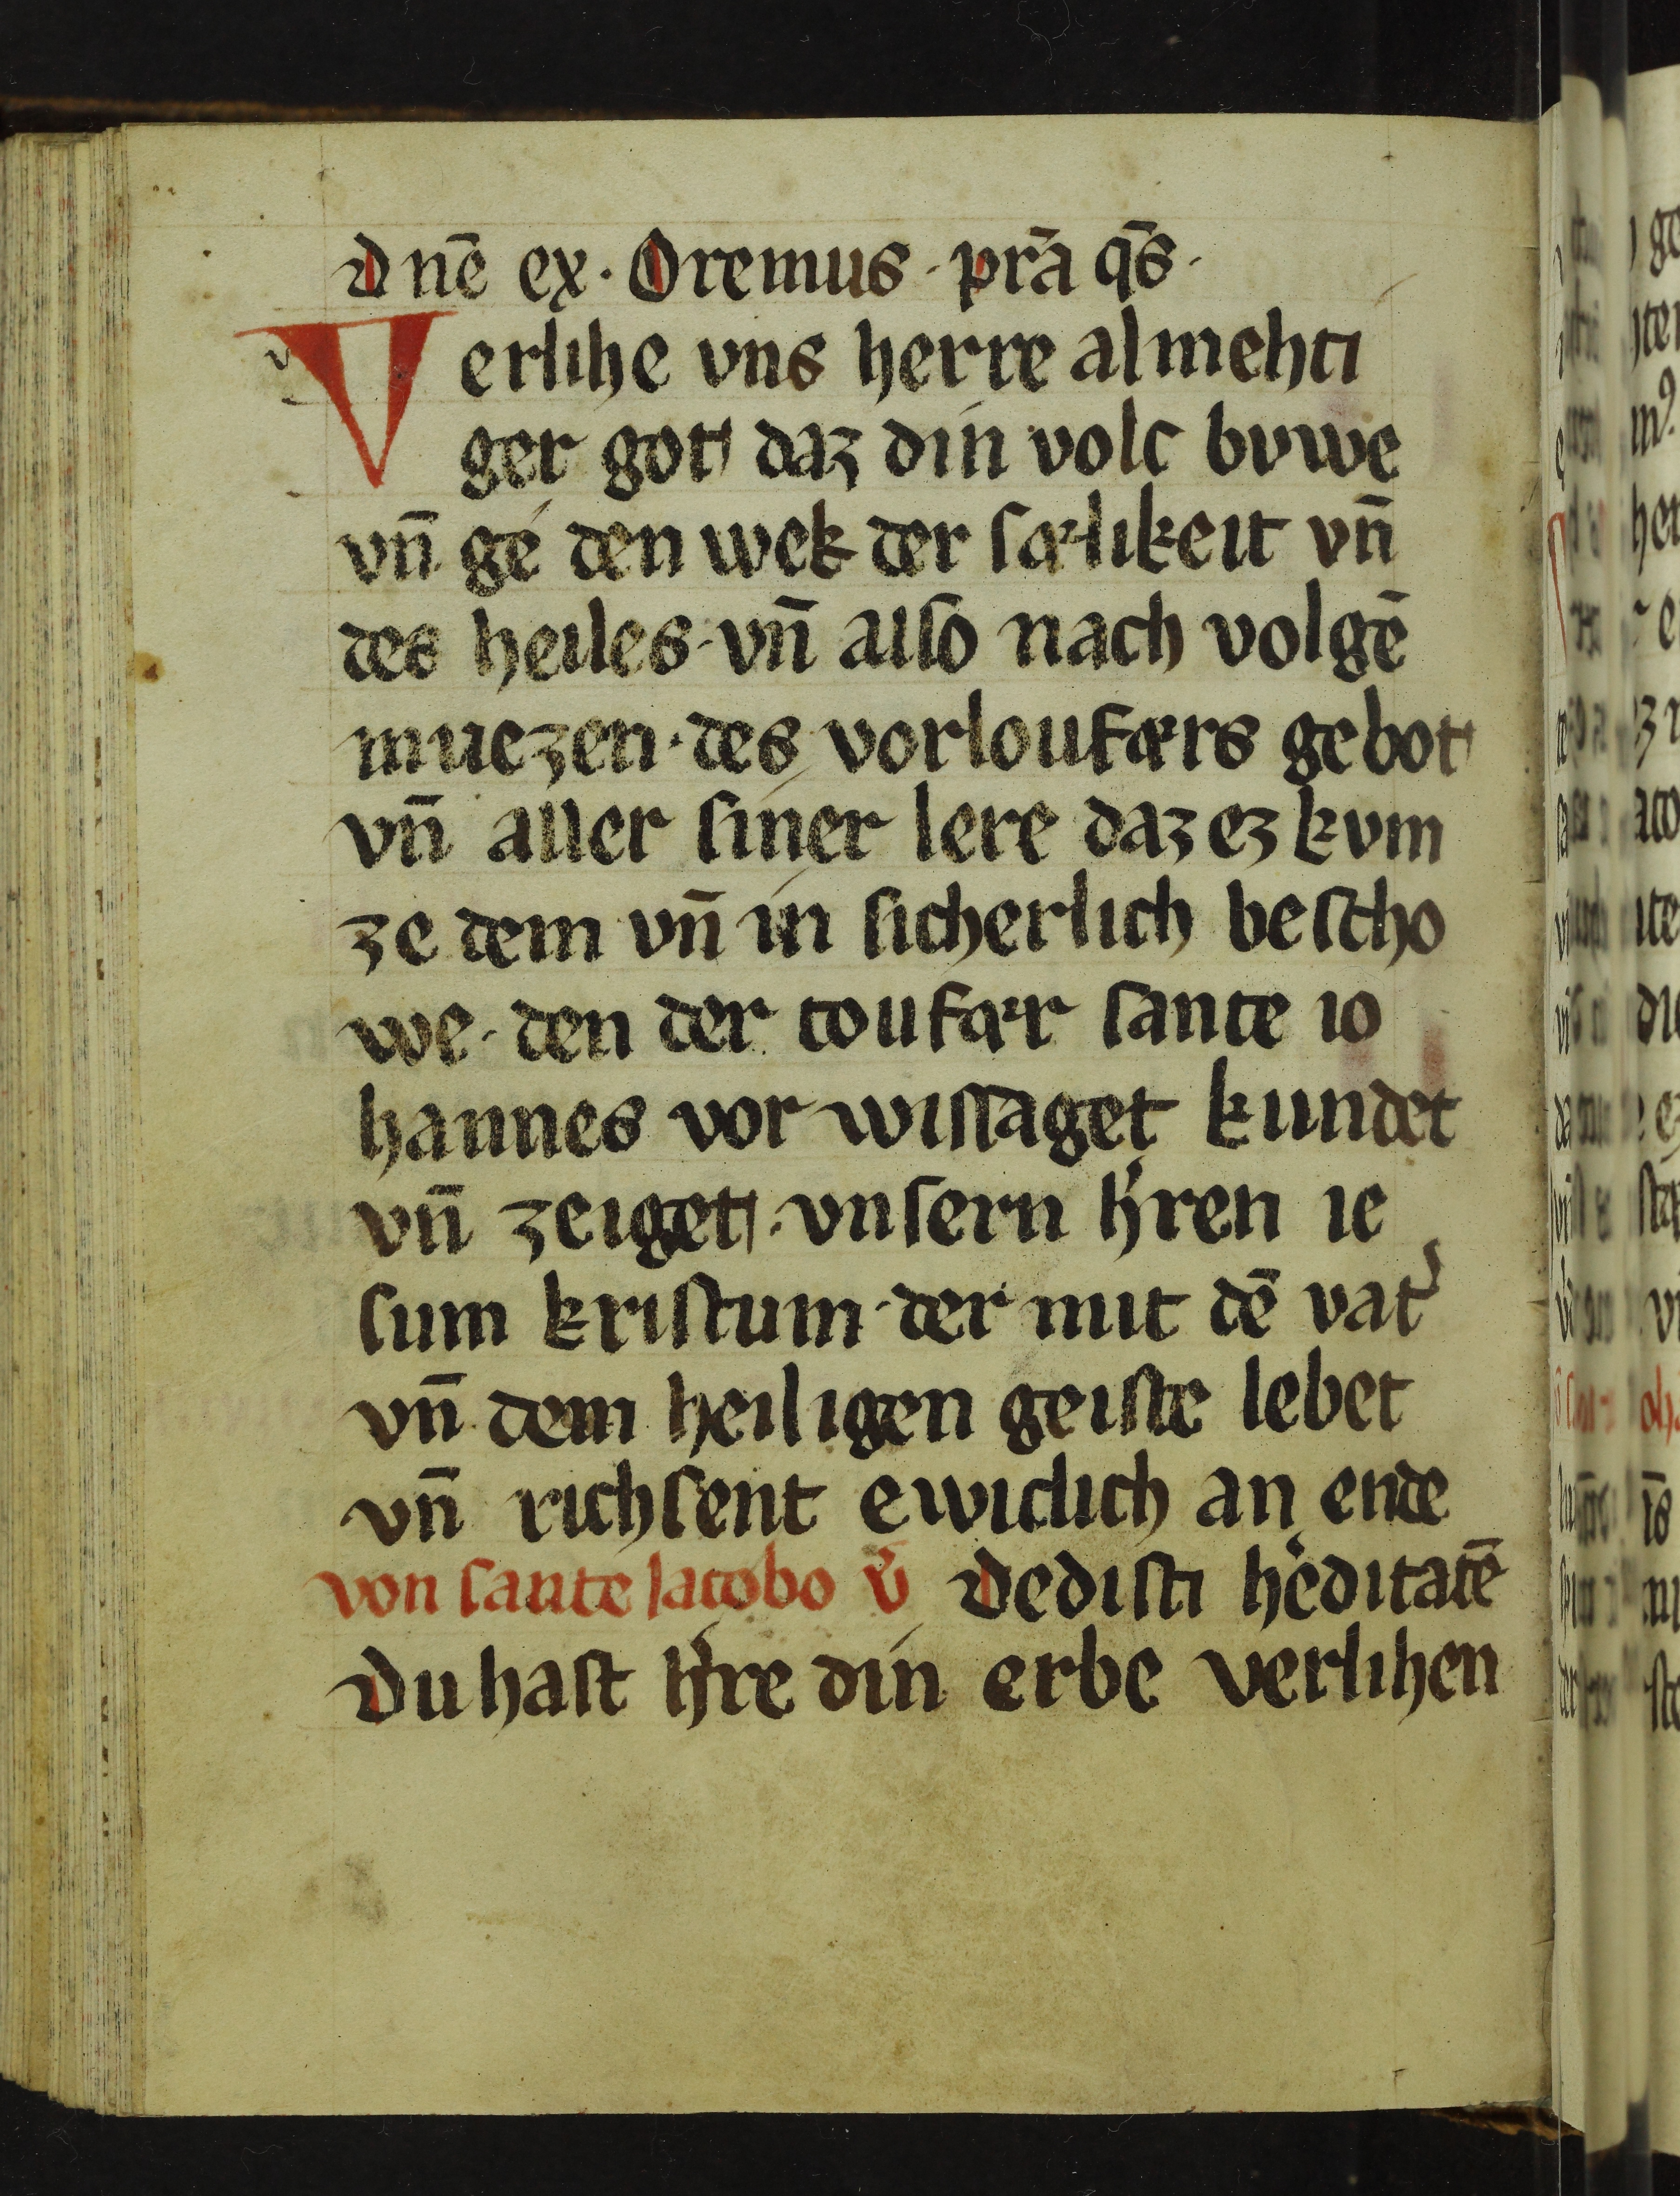 Dnē ex. Oremus. pr̄a q̄s.
Verlihe vns herre almehti
ger got daz din volc bvwe
vn̄ gé den wek der sælikeit vn̄
des heiles. vn̄ allso nach volgē
muezen. des vorloufærs gebot
vn̄ aller siner lere daz ez kvm
ze dem vn̄ in sicherlich bescho
we. den der toufær sante io
hannes vor wissaget kundet
vn̄ zeiget. vnsern h̓ren ie
sum kristum. der mit dē vat̓
vn̄ dem heiligen geiste lebet
vn̄ richsent ewiclich an ende
von sante Jacobo v̓ Dedisti h̓editatē
Du hast h̓re din erbe verlihen